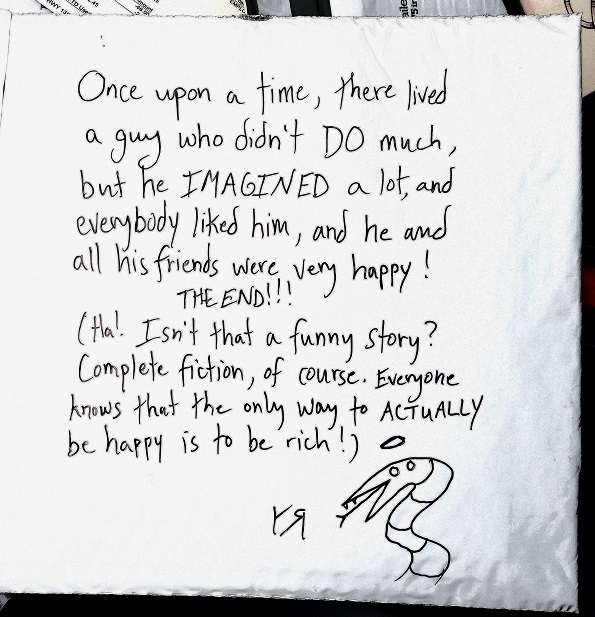 Once upon a time, there lived
a guy who didn't DO much,
but he IMAGINED a lot, and
everybody liked him, and he and
all his friends were very happy!
THE END!!!
(Ha! Isn't that a funny story?
Complete fiction, of course. Everyone
knows that the only way to ACTUALLY
be happy is to be rich!)